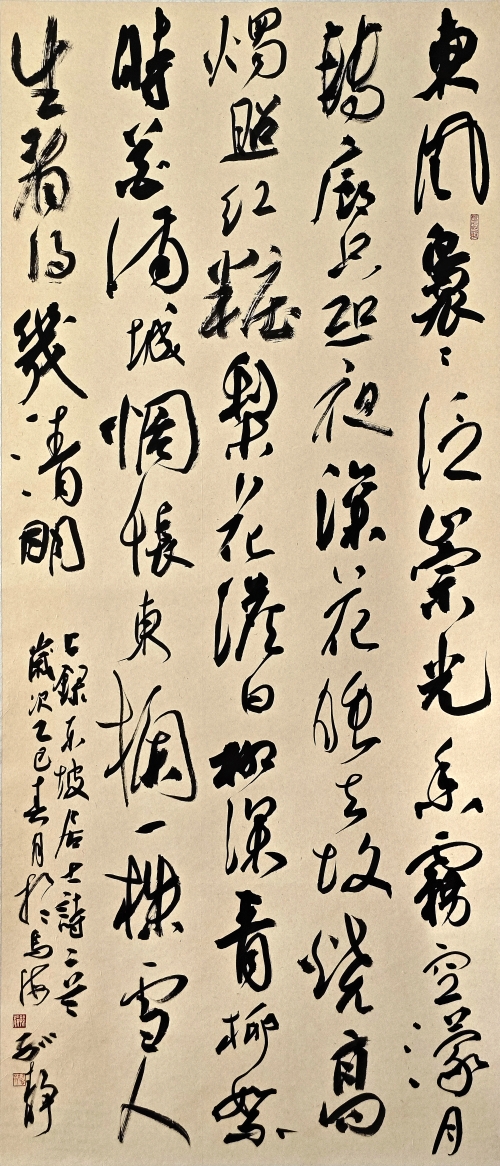 東風裊〻泛崇光香霧空濛月
轉廊只恐夜深花睡去故燒高
燭照紅粧梨花淡白柳深青柳絮
時花滿城惆悵東欄一株雪人
生看得幾清明
録東坡居士詩二首
歲次乙巳春月於烏海
静